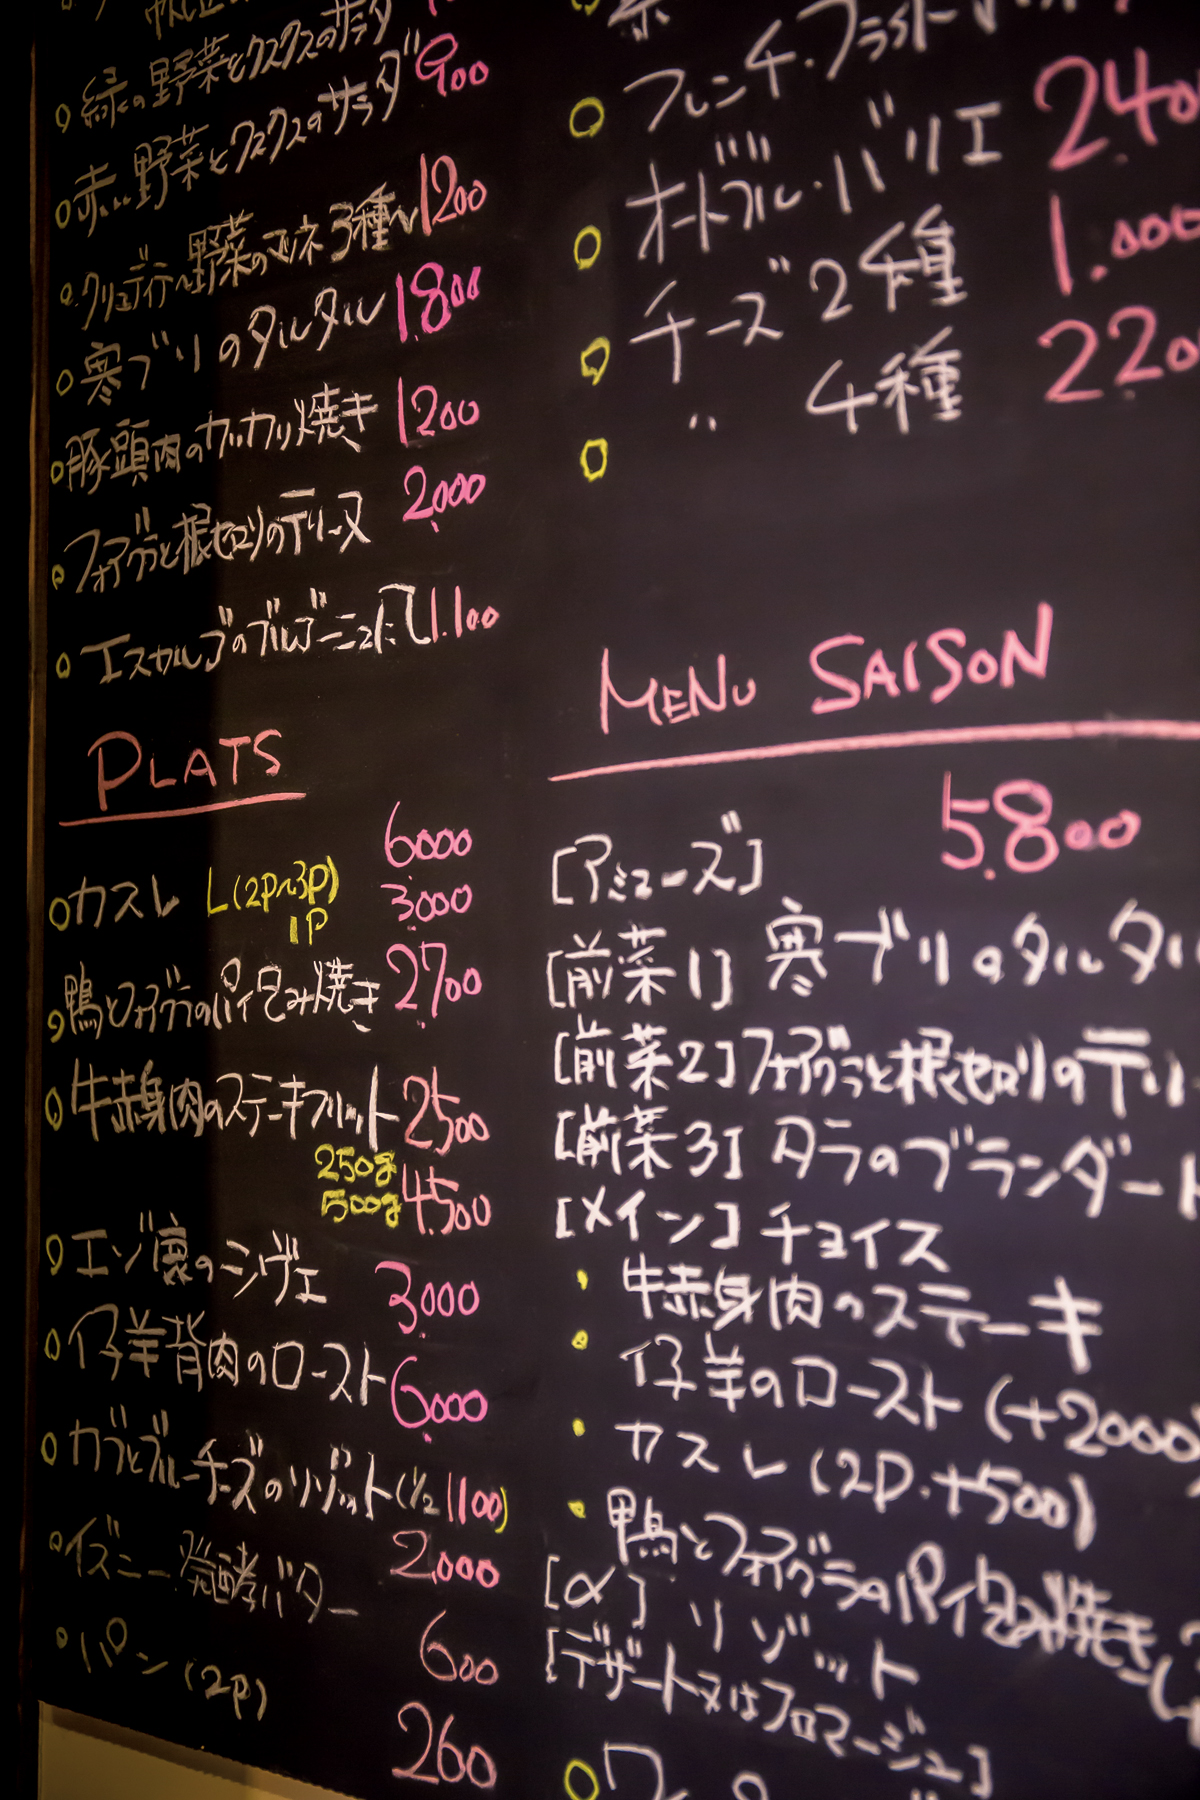 緑の野菜とクスクスのサラダ
赤い野菜とクスクスのサラダ 900
クリュディテ〜野菜のマリネ3種〜 1200
寒ブリのタルタル 1.800
豚頭肉のカリカリ焼き 1200
フォアグラと根セロリのテリーヌ 2.000
エスカルゴのブルゴーニュ風 1.100
PLATS
6.000
カスレ L(2P〜3P) 3.000
1P
鴨とフォアグラのパイ包み焼き 2.700
牛赤身肉のステーキフリット 2500
250g
500g 4.500
エゾ鹿のシヴェ 3.000
仔羊背肉のロースト 6.000
カブとブルーチーズのリゾット(1/2 1100)
2.000
イズニー発酵バター
600
パン(2P)
260
フレンチ・フライドポテト
オードブル・バリエ 2.40
チーズ2種 1.000
〃 4種 2.20
MENU SAISON
5.800
[アミューズ]
[前菜1] 寒ブリのタルタル
[前菜2] フォアグラと根セロリのテリー
[前菜3] タラのブランダード
[メイン] チョイス
・牛赤身肉のステーキ
・仔羊のロースト (+2000)
・カスレ (2P・+500)
・鴨とフォアグラのパイ包み焼き
[α] リゾット
[デザート又はフロマージュ]